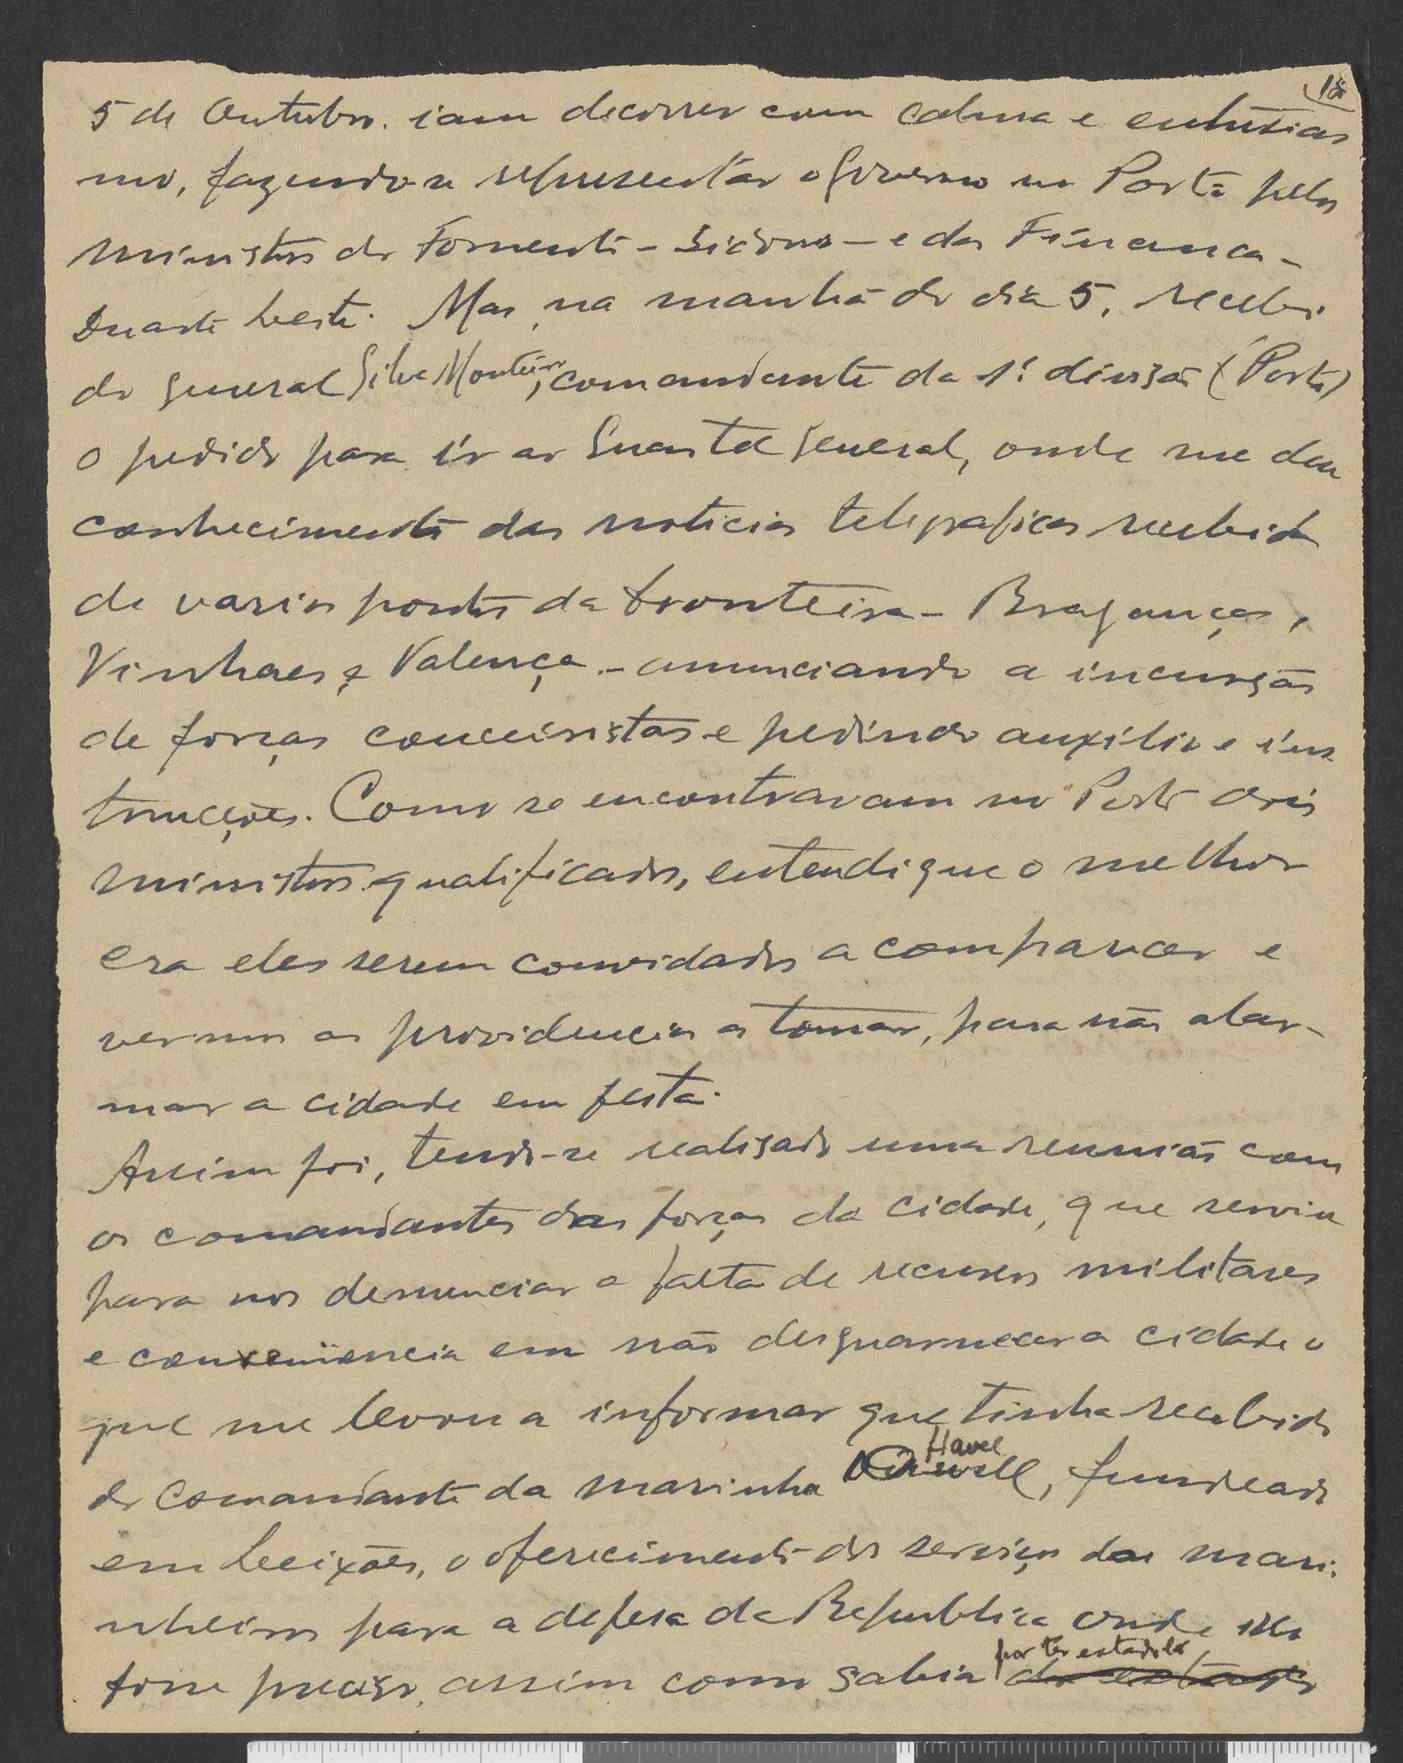 18
5 de Outubro. iam decorrer com calma e entusias
mo, fazendo-se representar o Governo no Porto pelos
ministros do Fomento - Sidonio - e das Finanças -
Duarte Leite. Mas, na manhã do dia 5, recebi
do general Silva Monteiro, comandante da 1ª divisão (Porto)
o pedido para ir ao Quartel General, onde me deu
conhecimento das noticias telegraficas recebidas
de varios pontos da fronteira - Bragança,
Vinhaes e Valença - anunciando a incursão
de forças couceiristas e pedindo auxilio e ins
truções. Como se encontravam no Porto dois
ministros qualificados, entendi que o melhor
era eles serem convidados a comparecer e
vermos as providencias a tomar, para não alar-
mar a cidade em festa.
Assim foi, tendo-se realisado uma reunião com
os comandantes das forças da cidade, que serviu
para nos denunciar a falta de recursos militares
e conveniencia em não desguarnecer a cidade o
que me levou a informar que tinha recebido
do comandante da marinha Havel, fundeado
em Leixões, o oferecimento dos serviços dos mari-
nheiros para a defesa da Republica onde isso
fosse preciso, assim como sabia por ter estado lá do estado